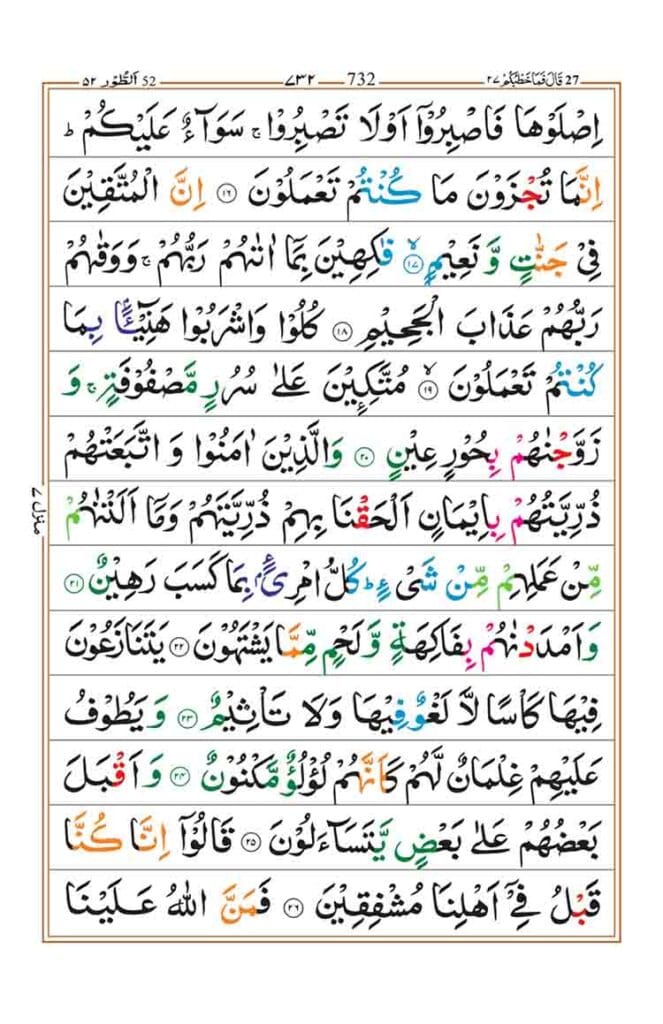 27 قَالَ فَمَا خَطْبُكُمْ ٢٧ 732 ٧٣٢ 52 اَلطُّوْر ٥٢
اِصْلَوْهَا فَاصْبِرُوْۤا اَوْ لَا تَصْبِرُوْا ۚ سَوَآءٌ عَلَيْكُمْ ؕ
اِنَّمَا تُجْزَوْنَ مَا كُنْتُمْ تَعْمَلُوْنَ ۝۱۶ اِنَّ الْمُتَّقِيْنَ
فِيْ جَنّٰتٍ وَّ نَعِيْمٍ ۙ۝۱۷ فٰكِهِيْنَ بِمَاۤ اٰتٰىهُمْ رَبُّهُمْ ۚ وَوَقٰىهُمْ
رَبُّهُمْ عَذَابَ الْجَحِيْمِ ۝۱۸ كُلُوْا وَاشْرَبُوْا هَنِيْٓـًٔۢا بِمَا
كُنْتُمْ تَعْمَلُوْنَ ۙ۝۱۹ مُتَّكِـِٕيْنَ عَلٰى سُرُرٍ مَّصْفُوْفَةٍ ۚ وَ
زَوَّجْنٰهُمْ بِحُوْرٍ عِيْنٍ ۝۲۰ وَالَّذِيْنَ اٰمَنُوْا وَ اتَّبَعَتْهُمْ
ذُرِّيَّتُهُمْ بِاِيْمَانٍ اَلْحَقْنَا بِهِمْ ذُرِّيَّتَهُمْ وَمَاۤ اَلَتْنٰهُمْ
مِّنْ عَمَلِهِمْ مِّنْ شَيْءٍ ؕ كُلُّ امْرِئٍۭ بِمَا كَسَبَ رَهِيْنٌ ۝۲۱
وَاَمْدَدْنٰهُمْ بِفَاكِهَةٍ وَّلَحْمٍ مِّمَّا يَشْتَهُوْنَ ۝۲۲ يَتَنَازَعُوْنَ
فِيْهَا كَاْسًا لَّا لَغْوٌ فِيْهَا وَلَا تَاْثِيْمٌ ۝۲۳ وَ يَطُوْفُ
عَلَيْهِمْ غِلْمَانٌ لَّهُمْ كَاَنَّهُمْ لُؤْلُؤٌ مَّكْنُوْنٌ ۝۲۴ وَ اَقْبَلَ
بَعْضُهُمْ عَلٰى بَعْضٍ يَّتَسَآءَلُوْنَ ۝۲۵ قَالُوْۤا اِنَّا كُنَّا
قَبْلُ فِيْۤ اَهْلِنَا مُشْفِقِيْنَ ۝۲۶ فَمَنَّ اللّٰهُ عَلَيْنَا
منزل ٧